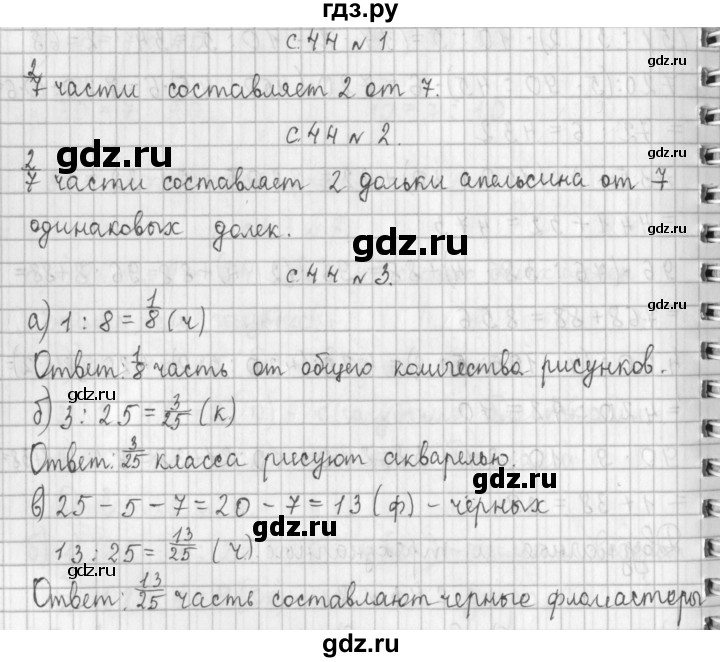 гдз.ру
с. 44 № 1.
2/7 части составляет 2 от 7.
с. 44 № 2.
2/7 части составляет 2 дольки апельсина от 7
одинаковых долек.
с. 44 № 3.
а) 1 : 8 = 1/8 (ч)
Ответ: 1/8 часть от общего количества рисунков.
б) 3 : 25 = 3/25 (к)
Ответ: 3/25 класса рисуют акварелью.
в) 25 - 5 - 7 = 20 - 7 = 13 (ф) - черных
13 : 25 = 13/25 (ч)
Ответ: 13/25 часть составляют черные фломастеры
gdz.ru
gdz.ru
gdz.ru
gdz.ru
gdz.ru
gdz.ru
gdz.ru
gdz.ru
gdz.ru
gdz.ru
gdz.ru
gdz.ru